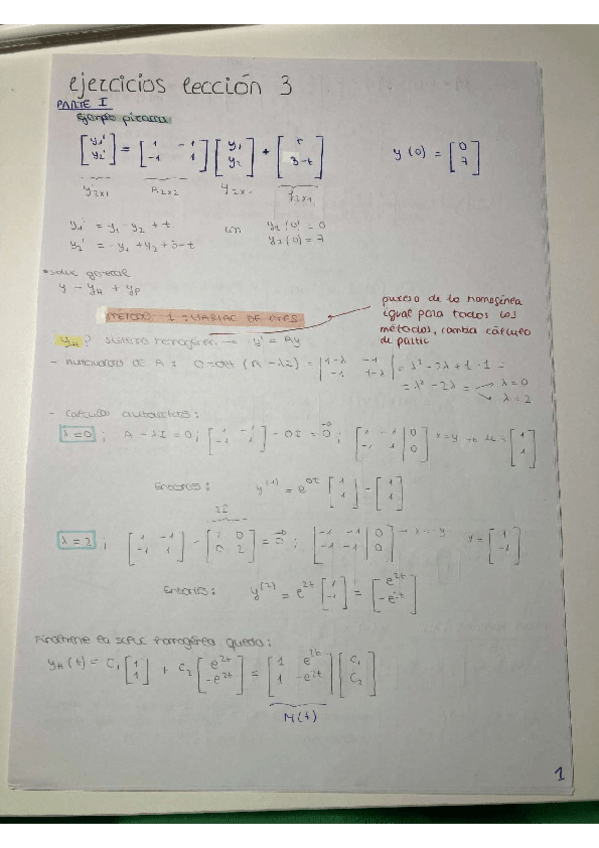 ejercicios lección 3
PARTE I
Ejemplo pizarra
[y₁' y₂'] = [1 -1; -1 1] [y₁ y₂] + [t 3-t]    y(0) = [0 7]
y'2x1    A2x2    y2x1    f2x1
y₁' = y₁ - y₂ + t    con    y₁(0) = 0
y₂' = -y₁ + y₂ + 3 - t    y₂(0) = 7
*soluc general
y = yH + yP
METODO 1: VARIAC DE CTES
proceso de la homogénea
igual para todos los
métodos, cambia cálculo
de partic
yH? sistema homogéneo → y' = Ay
- Autovalores de A: 0 = det(A - λI) = |1-λ -1; -1 1-λ| = λ² - 2λ + 1 - 1 =
= λ² - 2λ = → λ=0 → λ=2
- Calculas autovectores:
λ=0 ; A - λI = 0 ; [1 -1; -1 1] - 0I = 0 ; [1 -1 | 0; -1 1 | 0] x=y → [1 1]
Entonces: y⁽¹⁾ = e^0t [1 1] = [1 1]
2I
λ=2 ; [1 -1; -1 1] - [2 0; 0 2] = 0 ; [-1 -1 | 0; -1 -1 | 0] → x=-y    [1 -1]
Entonces: y⁽²⁾ = e^2t [1 -1] = [e^2t -e^2t]
Finalmente la soluc homogénea queda:
yH(t) = C₁ [1 1] + C₂ [e^2t -e^2t] = [1 e^2t; 1 -e^2t] [C₁ C₂]
M(t)
1